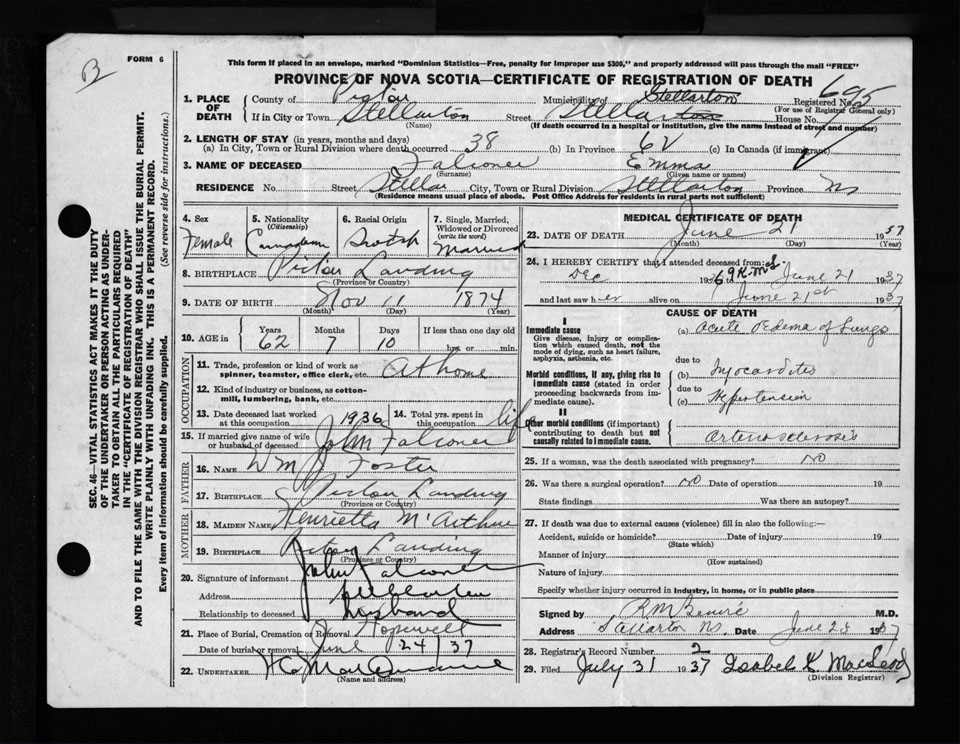 B
FORM 6
This form if placed in an envelope, marked "Dominion Statistics—Free, penalty for improper use $300," and properly addressed will pass through the mail "FREE"
PROVINCE OF NOVA SCOTIA—CERTIFICATE OF REGISTRATION OF DEATH
695
1. PLACE OF DEATH
County of Pictou Municipality of Stellarton Registered No.
(For use of Registrar General only)
If in City or Town Stellarton Street Stellarton House No.
(Name) (If death occurred in a hospital or institution, give the name instead of street and number)
2. LENGTH OF STAY (in years, months and days)
(a) In City, Town or Rural Division where death occurred 38 (b) In Province 62 (c) In Canada (if immigrant)
3. NAME OF DECEASED Falconer Emma
(Surname) (Given name or names)
RESIDENCE No. Street Stellar City, Town or Rural Division Stellarton Province NS
(Residence means usual place of abode. Post Office Address for residents in rural parts not sufficient)
4. Sex 5. Nationality (Citizenship) 6. Racial Origin 7. Single, Married, Widowed or Divorced (write the word)
Female Canadian Scotch Married
8. BIRTHPLACE Pictou Landing
(Province or Country)
9. DATE OF BIRTH Nov 11 1874
(Month) (Day) (Year)
10. AGE in Years Months Days If less than one day old
62 7 10 hrs. or min.
OCCUPATION
11. Trade, profession or kind of work as spinner, teamster, office clerk, etc. At home
12. Kind of industry or business, as cotton-mill, lumbering, bank, etc.
13. Date deceased last worked at this occupation 1936 14. Total yrs. spent in this occupation life
15. If married give name of wife or husband of deceased John Falconer
FATHER
16. NAME Wm J Foster
17. BIRTHPLACE Pictou Landing
(Province or Country)
MOTHER
18. MAIDEN NAME Henrietta McArthur
19. BIRTHPLACE Pictou Landing
(Province or Country)
20. Signature of informant John Falconer
Address Stellarton
Relationship to deceased husband
21. Place of Burial, Cremation or Removal Hopewell
Date of burial or removal June 24/37
22. UNDERTAKER
(Name and address)
MEDICAL CERTIFICATE OF DEATH
23. DATE OF DEATH June 21 1937
(Month) (Day) (Year)
24. I HEREBY CERTIFY that I attended deceased from:
Dec 1936 to June 21 1937
and last saw her alive on June 21st 1937
CAUSE OF DEATH
I
Immediate cause
Give disease, injury or complication which caused death, not the mode of dying, such as heart failure, asphyxia, asthenia, etc.
(a) Acute Edema of Lungs
due to
Morbid conditions, if any, giving rise to immediate cause (stated in order proceeding backwards from immediate cause).
(b) Myocarditis
due to
(c) Hypertension
II
Other morbid conditions (if important) contributing to death but not causally related to immediate cause.
Arteriosclerosis
25. If a woman, was the death associated with pregnancy? NO
26. Was there a surgical operation? NO Date of operation 19
State findings Was there an autopsy?
27. If death was due to external causes (violence) fill in also the following:—
Accident, suicide or homicide? Date of injury 19
(State which)
Manner of injury
(How sustained)
Nature of injury
Specify whether injury occurred in industry, in home, or in public place
Signed by M.D.
Address Stellarton NS. Date June 23 1937
28. Registrar's Record Number 2
29. Filed July 31 1937 Isabel K. MacLeod
(Division Registrar)
SEC. 46—VITAL STATISTICS ACT MAKES IT THE DUTY
OF THE UNDERTAKER OR PERSON ACTING AS UNDER-
TAKER TO OBTAIN ALL THE PARTICULARS REQUIRED
IN THE "CERTIFICATE OF REGISTRATION OF DEATH"
AND TO FILE THE SAME WITH THE DIVISION REGISTRAR WHO SHALL ISSUE THE BURIAL PERMIT.
WRITE PLAINLY WITH UNFADING INK. THIS IS A PERMANENT RECORD.
Every item of information should be carefully supplied. (See reverse side for instructions.)